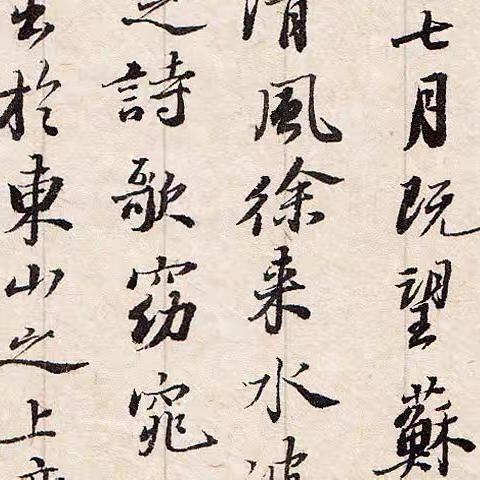 七月既望蘇
清風徐来水波
之詩歌窈窕
出於東山之上